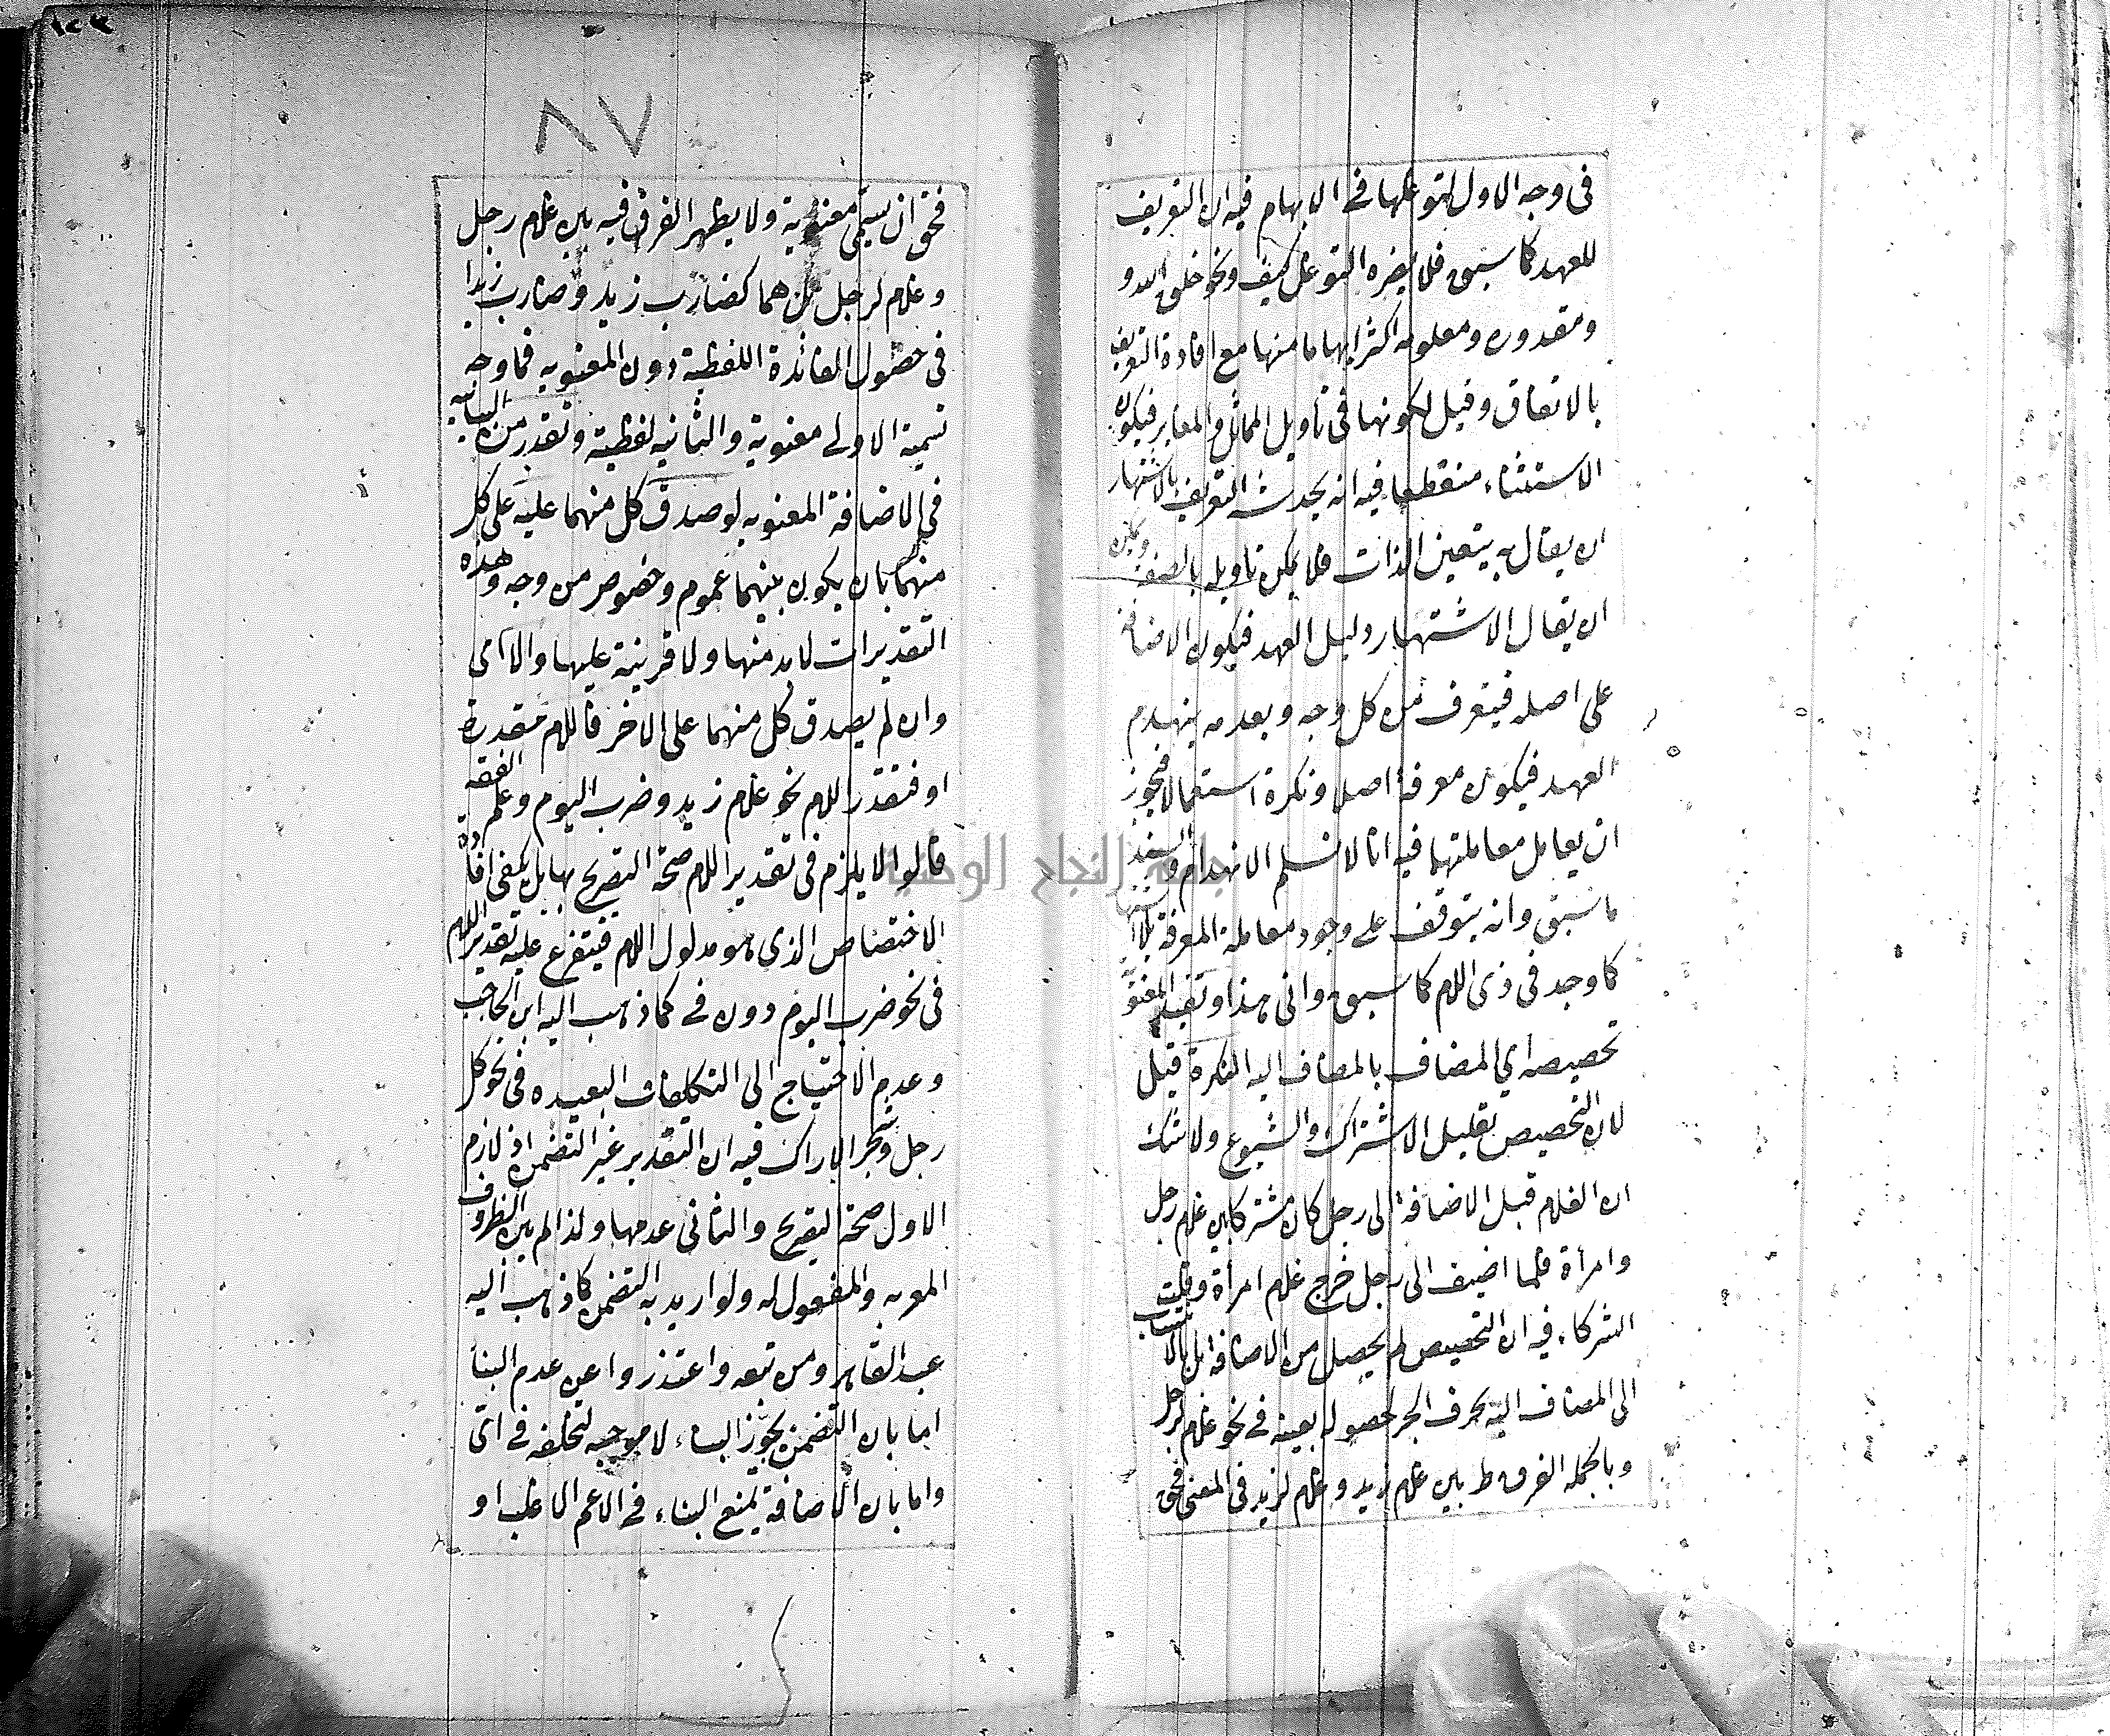 في وجه الاول لتوغلها في الابهام فيه ان التعريف
للعهد كما سبق فلا يضره التوغل كيف ونحو خلق الله و
ومقدوره ومعلومه اكثر ابهاما منها مع افادة التعريف
بالاتفاق وقيل لكونها في تأويل المماثل والمغاير فيكون
الاستثناء منقطعا فيه انه يحدث التعريف بالاشتهار
ان يقال به يتعين الذات فلا يمكن تأويله بالصفة ويمكن
ان يقال الاشتهار دليل العهد فيكون الاضافة
على اصله فيتعرف من كل وجه وبعدمه ينهدم
العهد فيكون معرفة اصلا ونكرة استعمالا فيجوز
ان يعامل معاملتهما فيه انا لا نسلم الانهدام والسند
ما سبق وانه يتوقف على وجود معاملة المعرفة
كما وجد في ذي اللام كما سبق واني هذا وتفيد المعنوية
تخصيصه اي المضاف بالمضاف اليه النكرة قيل
لان التخصيص تقليل الاشتراك والشيوع ولا شك
ان الغلام قبل الاضافة الى رجل كان مشتركا بين غلام رجل
وامرأة فلما اضيف الى رجل خرج غلام امرأة وقلت
الشركاء فيه ان التخصيص لم يحصل من الاضافة بل بالانتساب
الى المضاف اليه بحرف الجر لحصوله بعينه في نحو غلام لرجل
وبالجملة الفرق ط بين غلام زيد وغلام لزيد في المعنى فحق
١٢٣
٨٧
فحق ان يسمى معنوية ولا يظهر الفرق فيه بين غلام رجل
وغلام لرجل فمن هما كضارب زيد وضارب زيدا
في حصول الفائدة اللفظية دون المعنوية فما وجه
تسمية الاولى معنوية والثانية لفظية وتقدر من البيانية
في الاضافة المعنوية لو صدق كل منهما عليه على كل
منهما بان يكون بينهما عموم وخصوص من وجه وهذه
التقديرات لا بد منها ولا قرينة عليها والا اى
وان لم يصدق كل منهما على الاخر فاللام مقدرة
او فتقدر اللام نحو غلام زيد وضرب اليوم وعلم الفقه
قالوا لا يلزم في تقدير اللام صحة التصريح بها بل يكفي افادة
الاختصاص الذي هو مدلول اللام فيتفرع عليه تقدير اللام
في نحو ضرب اليوم دون في كما ذهب اليه ابن الحاجب
وعدم الاحتياج الى التكلفات البعيده في نحو كل
رجل وشجر الاراك فيه ان التقدير غير التضمن اذ لازم
الاول صحة التصريح والثاني عدمها ولذا لم يبن الظروف
المعربه والمفعول له ولو اريد به التضمن كما ذهب اليه
عبد القاهر ومن تبعه واعتذروا عن عدم البناء
اما بان التضمن يجوز البناء لا موجبه لتخلفه في اى
واما بان الاضافة يمنع البناء في الاعم الاغلب او
جامعة النجاح الوطنية